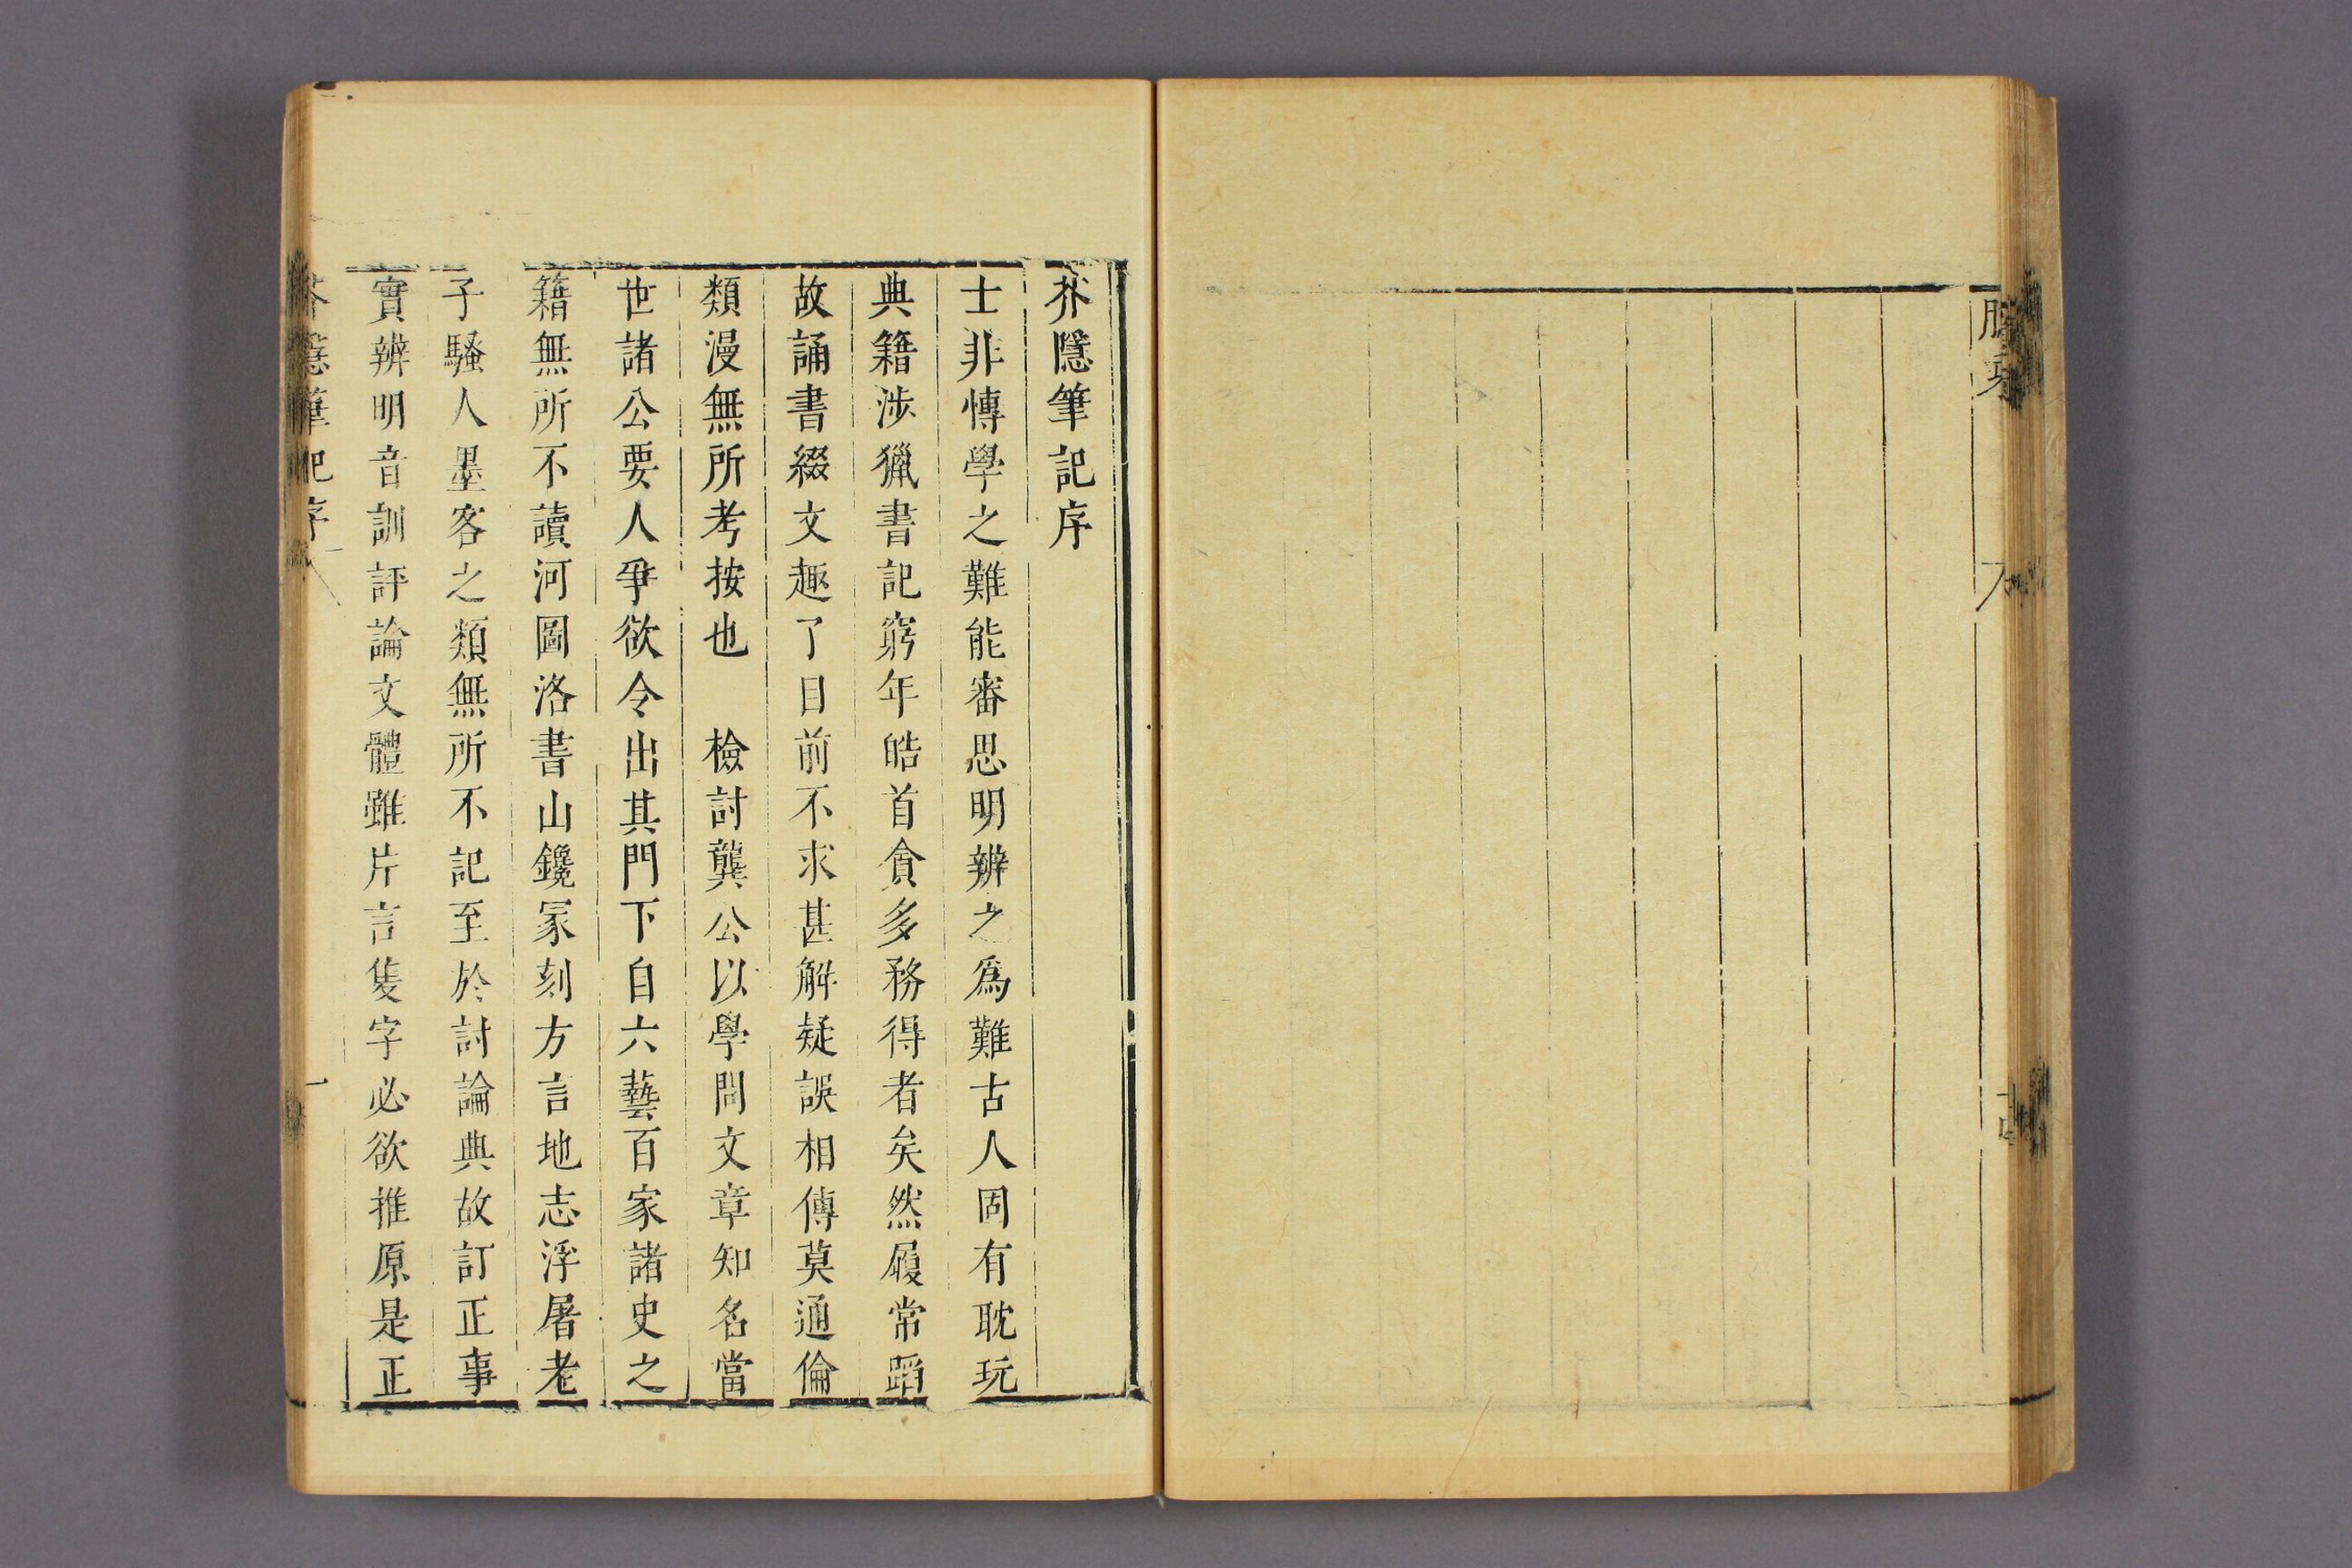 芥隱筆記序
士非慱學之難能審思明辨之爲難古人固有耽玩
典籍涉獵書記窮年皓首貪多務得者矣然履常蹈
故誦書綴文趣了目前不求甚解疑誤相傳莫通倫
類漫無所考按也　檢討龔公以學問文章知名當
世諸公要人爭欲令出其門下自六藝百家諸史之
籍無所不讀河圖洛書山鑱冢刻方言地志浮屠老
子騷人墨客之類無所不記至於討論典故訂正事
實辨明音訓評論文體雖片言隻字必欲推原是正
芥隱筆記序
一